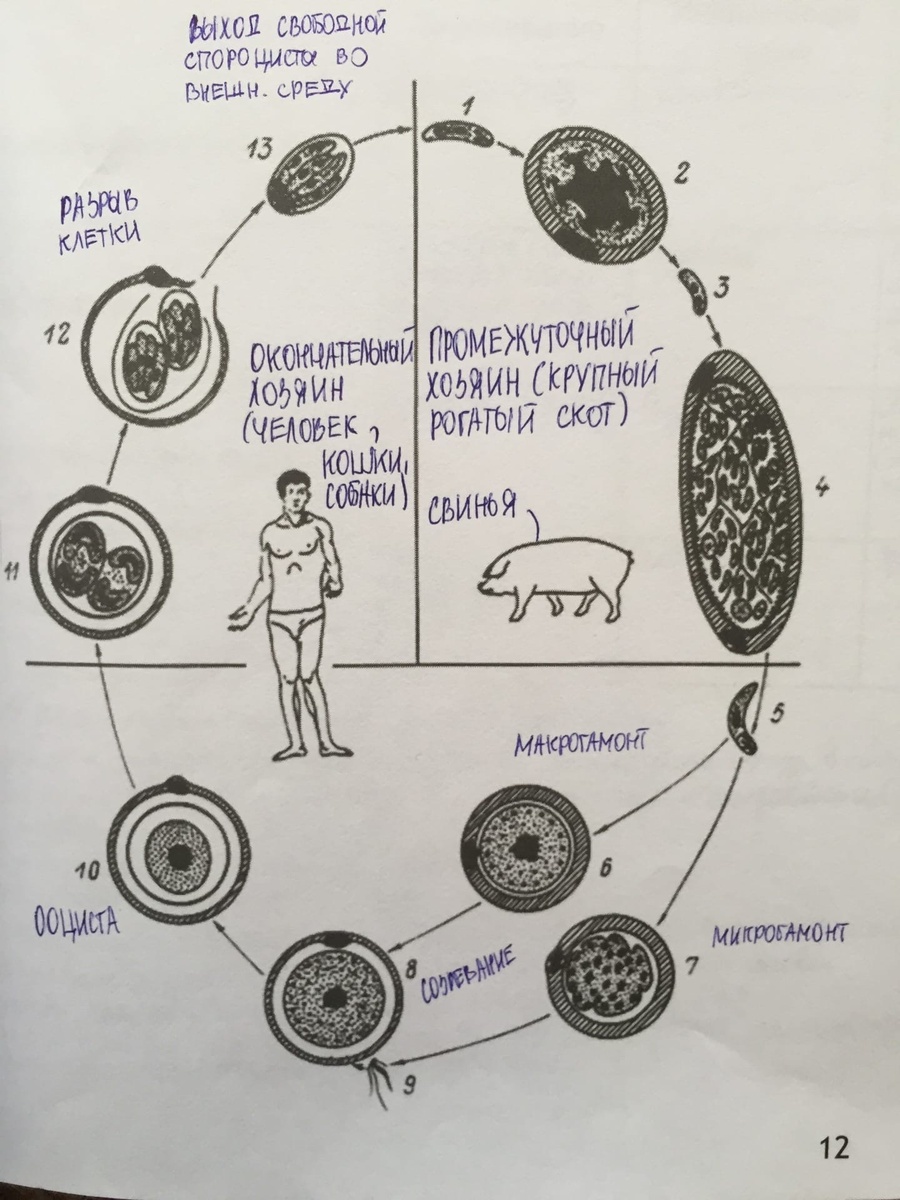 ВЫХОД СВОБОДНОЙ
СПОРОЦИСТЫ ВО
ВНЕШН. СРЕДУ
1
13
2
РАЗРЫВ
КЛЕТКИ
3
12
ОКОНЧАТЕЛЬНЫЙ
ХОЗЯИН
(ЧЕЛОВЕК,
КОШКИ,
СОБАКИ)
ПРОМЕЖУТОЧНЫЙ
ХОЗЯИН (КРУПНЫЙ
РОГАТЫЙ СКОТ)
4
СВИНЬЯ
11
5
МАКРОГАМОНТ
10
6
ООЦИСТА
МИКРОГАМОНТ
7
8
СОЗРЕВАНИЕ
9
12